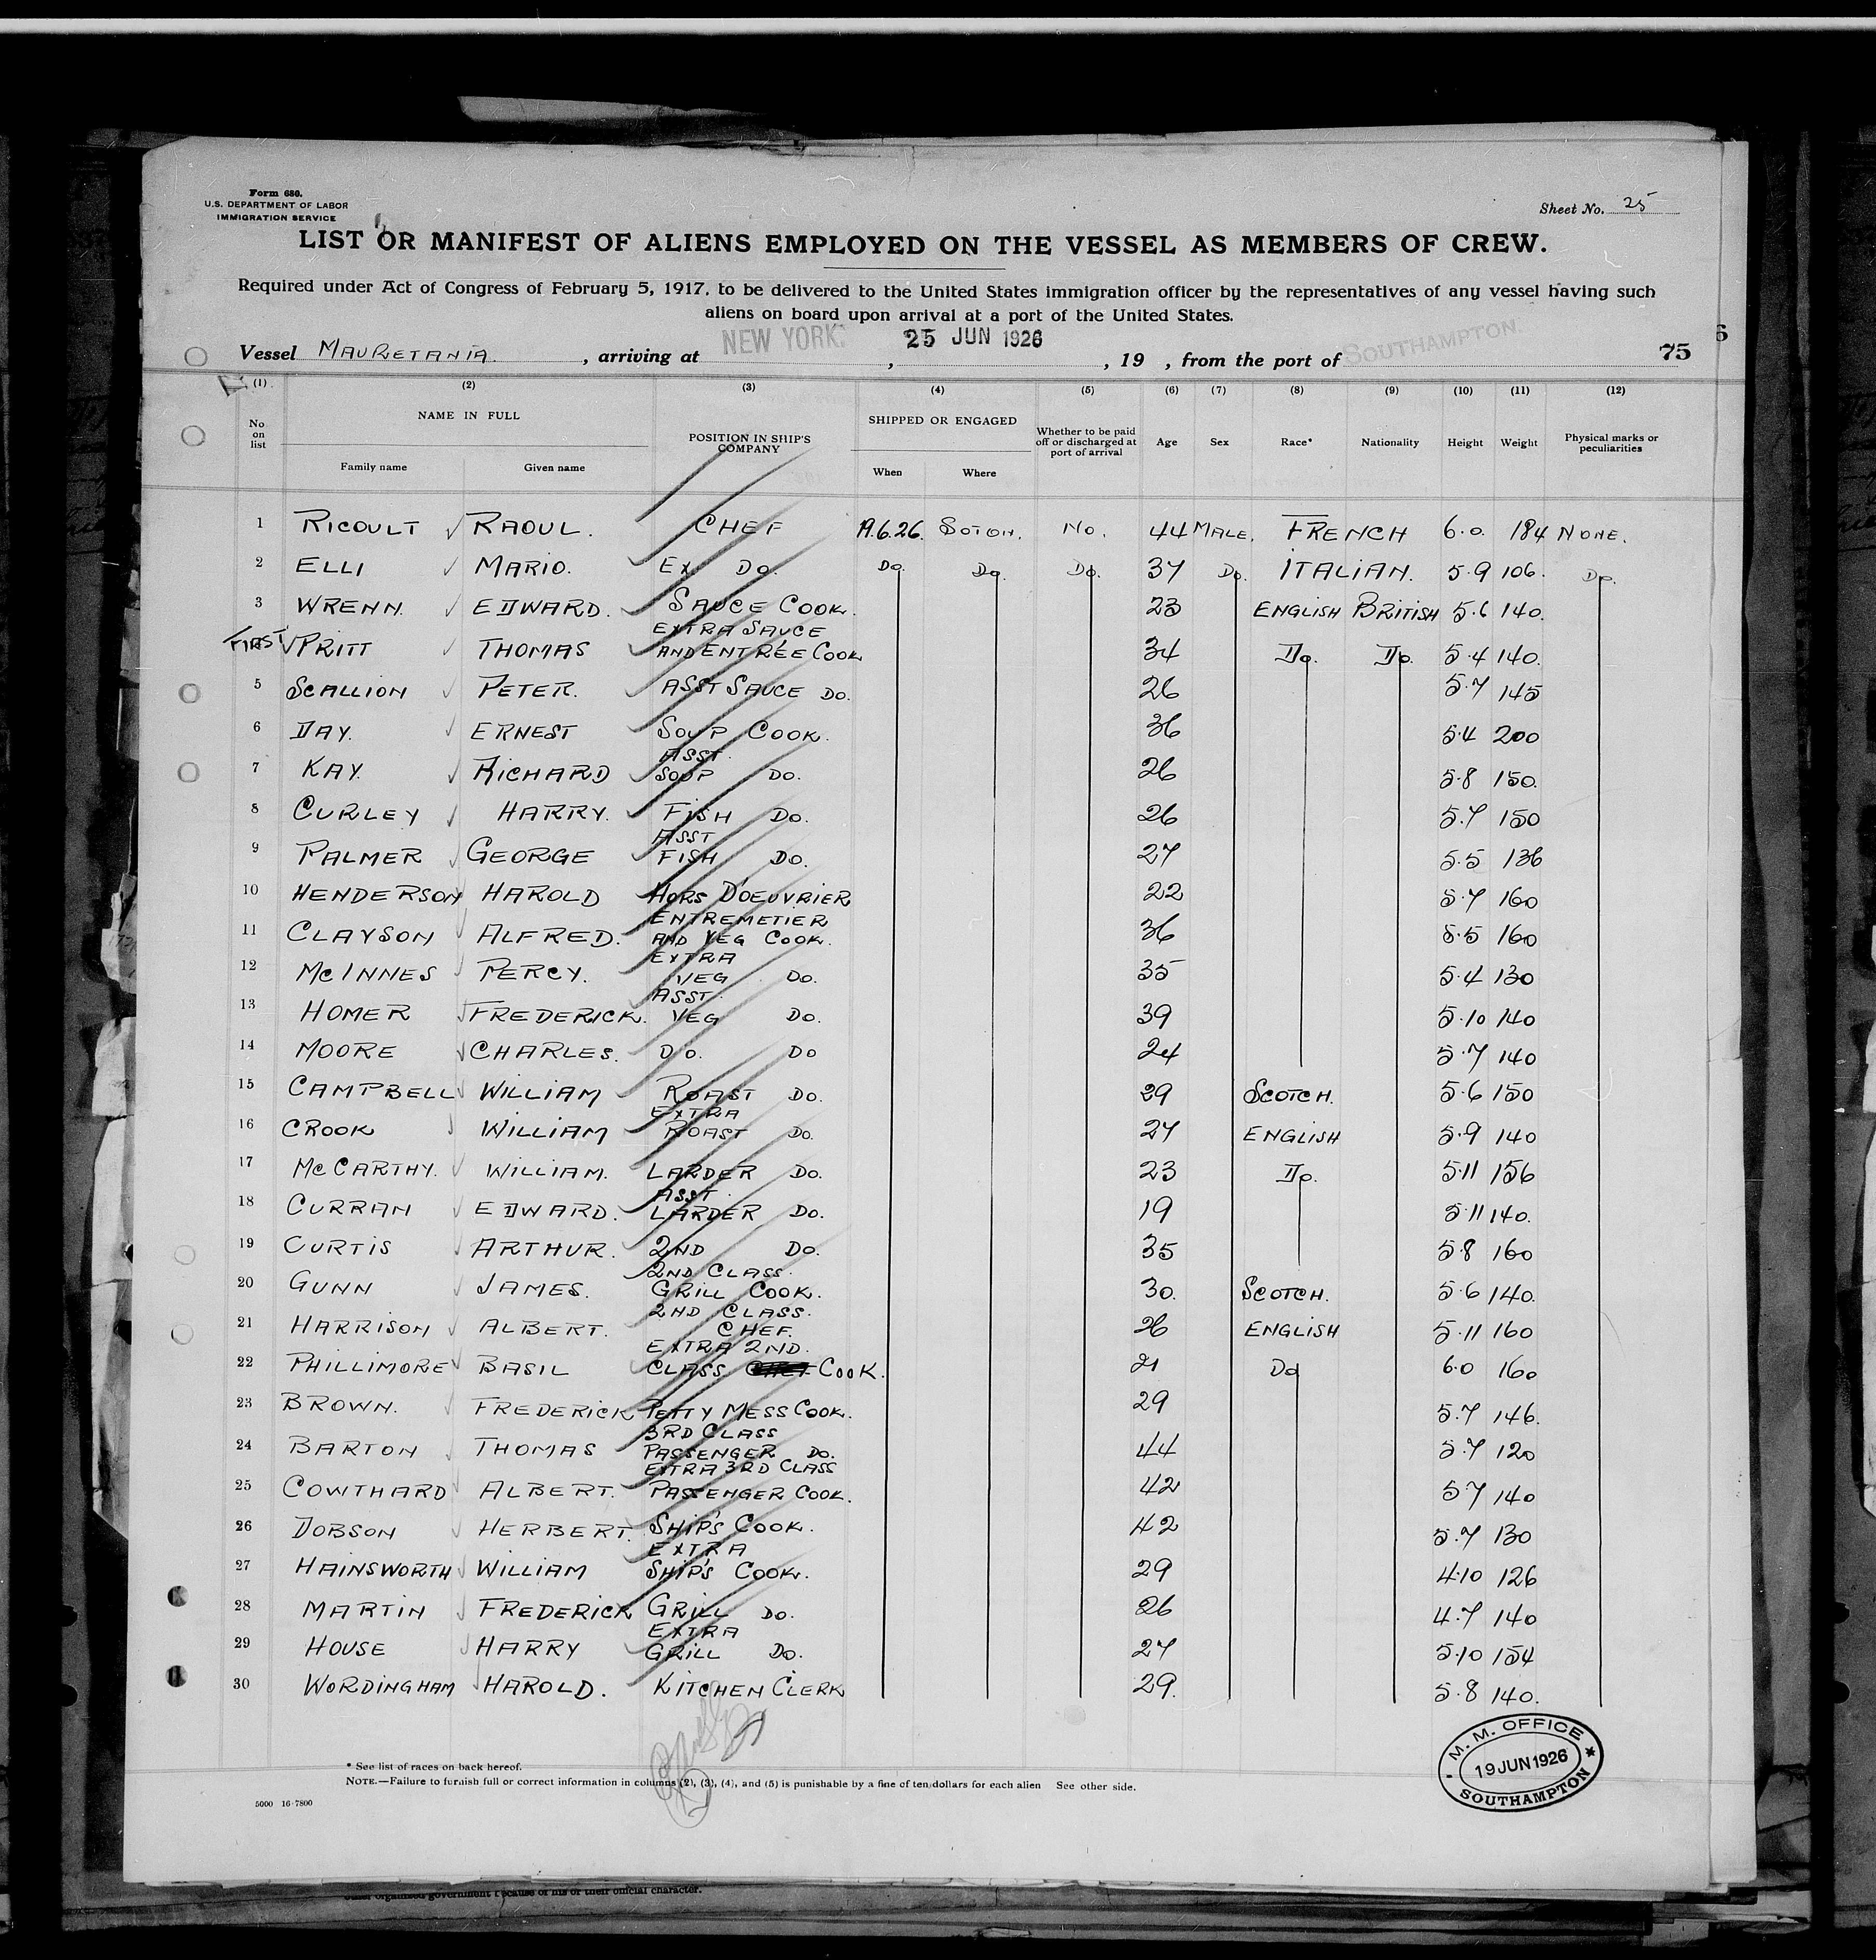 Form 680.
U.S. DEPARTMENT OF LABOR
IMMIGRATION SERVICE
Sheet No. 25
LIST OR MANIFEST OF ALIENS EMPLOYED ON THE VESSEL AS MEMBERS OF CREW.
Required under Act of Congress of February 5, 1917, to be delivered to the United States immigration officer by the representatives of any vessel having such
aliens on board upon arrival at a port of the United States.
Vessel MAURETANIA. , arriving at NEW YORK. , 25 JUN 1926 , 19 , from the port of SOUTHAMPTON. 75
6
(1) (2) (3) (4) (5) (6) (7) (8) (9) (10) (11) (12)
No on list
NAME IN FULL
Family name Given name
POSITION IN SHIP'S COMPANY
SHIPPED OR ENGAGED
When Where
Whether to be paid off or discharged at port of arrival
Age Sex Race* Nationality Height Weight
Physical marks or peculiarities
1 RICOULT RAOUL. CHEF 19.6.26. SOTON. NO. 44 MALE. FRENCH 6.0. 184 NONE.
2 ELLI MARIO. EX. DO. DO. DO. DO. 37 DO. ITALIAN. 5.9 106. DO.
3 WRENN. EDWARD. SAUCE COOK. 23 ENGLISH BRITISH 5.6 140.
FIRST PRITT THOMAS EXTRA SAUCE AND ENTRÉE COOK 34 DO. DO. 5.4 140.
5 SCALLION PETER. ASST SAUCE DO. 26 5.7 145
6 DAY. ERNEST SOUP COOK. 36 5.4 200
7 KAY. RICHARD ASST. SOUP DO. 26 5.8 150.
8 CURLEY HARRY. FISH DO. 26 5.7 150
9 PALMER GEORGE ASST FISH DO. 27 5.5 136
10 HENDERSON HAROLD HORS D'OEUVRIER 22 5.7 160
11 CLAYSON ALFRED. ENTREMETIER AND VEG COOK. 36 5.5 160
12 McINNES PERCY. EXTRA VEG DO. 35 5.4 130
13 HOMER FREDERICK. ASST. VEG DO. 39 5.10 140
14 MOORE CHARLES. DO. DO 24 5.7 140
15 CAMPBELL WILLIAM ROAST DO. 29 SCOTCH. 5.6 150
16 CROOK WILLIAM EXTRA ROAST DO. 27 ENGLISH 5.9 140
17 McCARTHY. WILLIAM. LARDER DO. 23 DO. 5.11 156
18 CURRAN EDWARD. ASST. LARDER DO. 19 5.11 140.
19 CURTIS ARTHUR. 2ND DO. 35 5.8 160
20 GUNN JAMES. 2ND CLASS. GRILL COOK. 30. SCOTCH. 5.6 140.
21 HARRISON ALBERT. 2ND CLASS. CHEF. 26 ENGLISH 5.11 160
22 PHILLIMORE BASIL EXTRA 2ND. CLASS COOK. 21 DO 6.0 160
23 BROWN. FREDERICK PETTY MESS COOK. 29 5.7 146.
24 BARTON THOMAS 3RD CLASS PASSENGER DO. 44 5.7 120
25 COWTHARD ALBERT. EXTRA 3RD CLASS PASSENGER COOK. 42 5.7 140
26 DOBSON HERBERT. SHIP'S COOK. 42 5.7 130
27 HAINSWORTH WILLIAM EXTRA SHIP'S COOK. 29 4.10 126
28 MARTIN FREDERICK GRILL DO. 26 4.7 140
29 HOUSE HARRY EXTRA GRILL DO. 27 5.10 154
30 WORDINGHAM HAROLD. KITCHEN CLERK 29. 5.8 140.
* See list of races on back hereof.
NOTE.—Failure to furnish full or correct information in columns (2), (3), (4), and (5) is punishable by a fine of ten dollars for each alien See other side.
5000 16-7800
M. M. OFFICE
19 JUN 1926
SOUTHAMPTON
other organized government because of his or their official character.